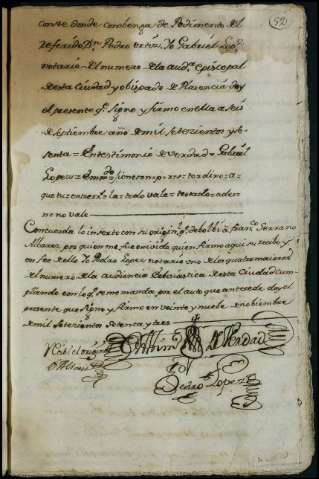 52
conste donde combenga de Pedimento del
referido Dn. Pedro Yo Gabriel Lop.
notario del numero de la aud.a episcopal
de esta Ciudad y obispado de Plasencia doy
el presente q.e signo y firmo en ella a seis
de septiembre año de mil setezientos y se
senta = En testimonio de verdad = Gabriel
Lopez =
= todo vale = testado = a den
ne no vale
Concuerda lo inserto con su origin.l q.e debolbi a fran.co Serrano
Albares por quien me fue exivida quien firmo aqui su recibo y
en fee de ello Yo Pedro Lopez notario uno de los quatro maiores
del numero de la audiencia eclesiastica de esta Ciudad cum
pliendo con lo q.e se me manda por el auto que antecede doy el
presente que signo y firmo en veinte y nuebe de nobiembre
de mil setezientos setenta y tres
Recibi el orig.l
En testim.o de Verdad
Pedro Lopez